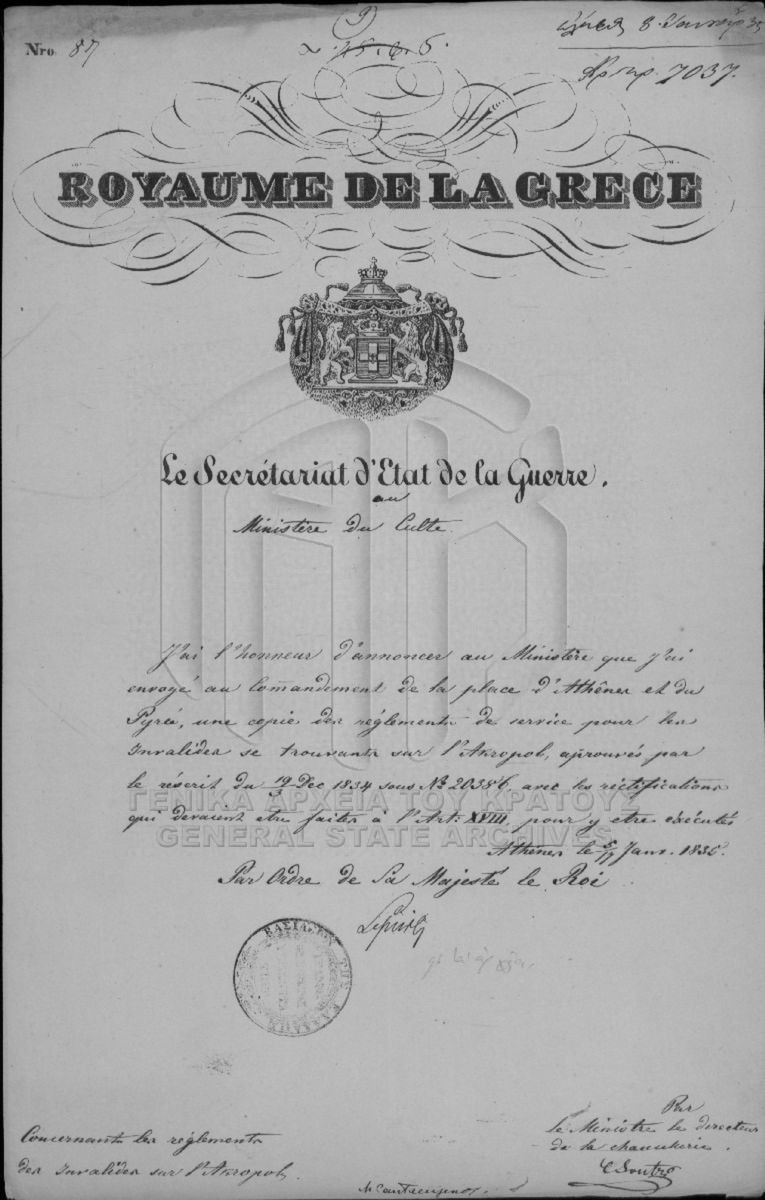 Nro. 87
Αρ. πρ. 7037.
ROYAUME DE LA GRÈCE
Le Secrétariat d'Etat de la Guerre.
au
Ministère du Culte.
J'ai l'honneur d'annoncer au Ministère que j'ai
envoyé au Comandement de la place d'Athênes et du
Pyrée, une copie des réglements de service pour les
Invalides se trouvants sur l'Akropol, aprouvés par
le réscrit du 19/3 Dec 1834 sous No 20386, avec les réctifications
qui devaient etre faites à l'Art: XVIII, pour y etre éxécutés
ΓΕΝΙΚΑ ΑΡΧΕΙΑ ΤΟΥ ΚΡΑΤΟΥΣ
GENERAL STATE ARCHIVES
Athênes le 5/17 Janv. 1835.
Par Ordre de Sa Majesté le Roi
ΒΑΣΙΛΕΙΑ ΤΗΣ ΕΛΛΑΔΟΣ
Par
le Ministre le directeur
de la chancelerie.
Concernant les réglements
des Invalides sur l'Akropol.